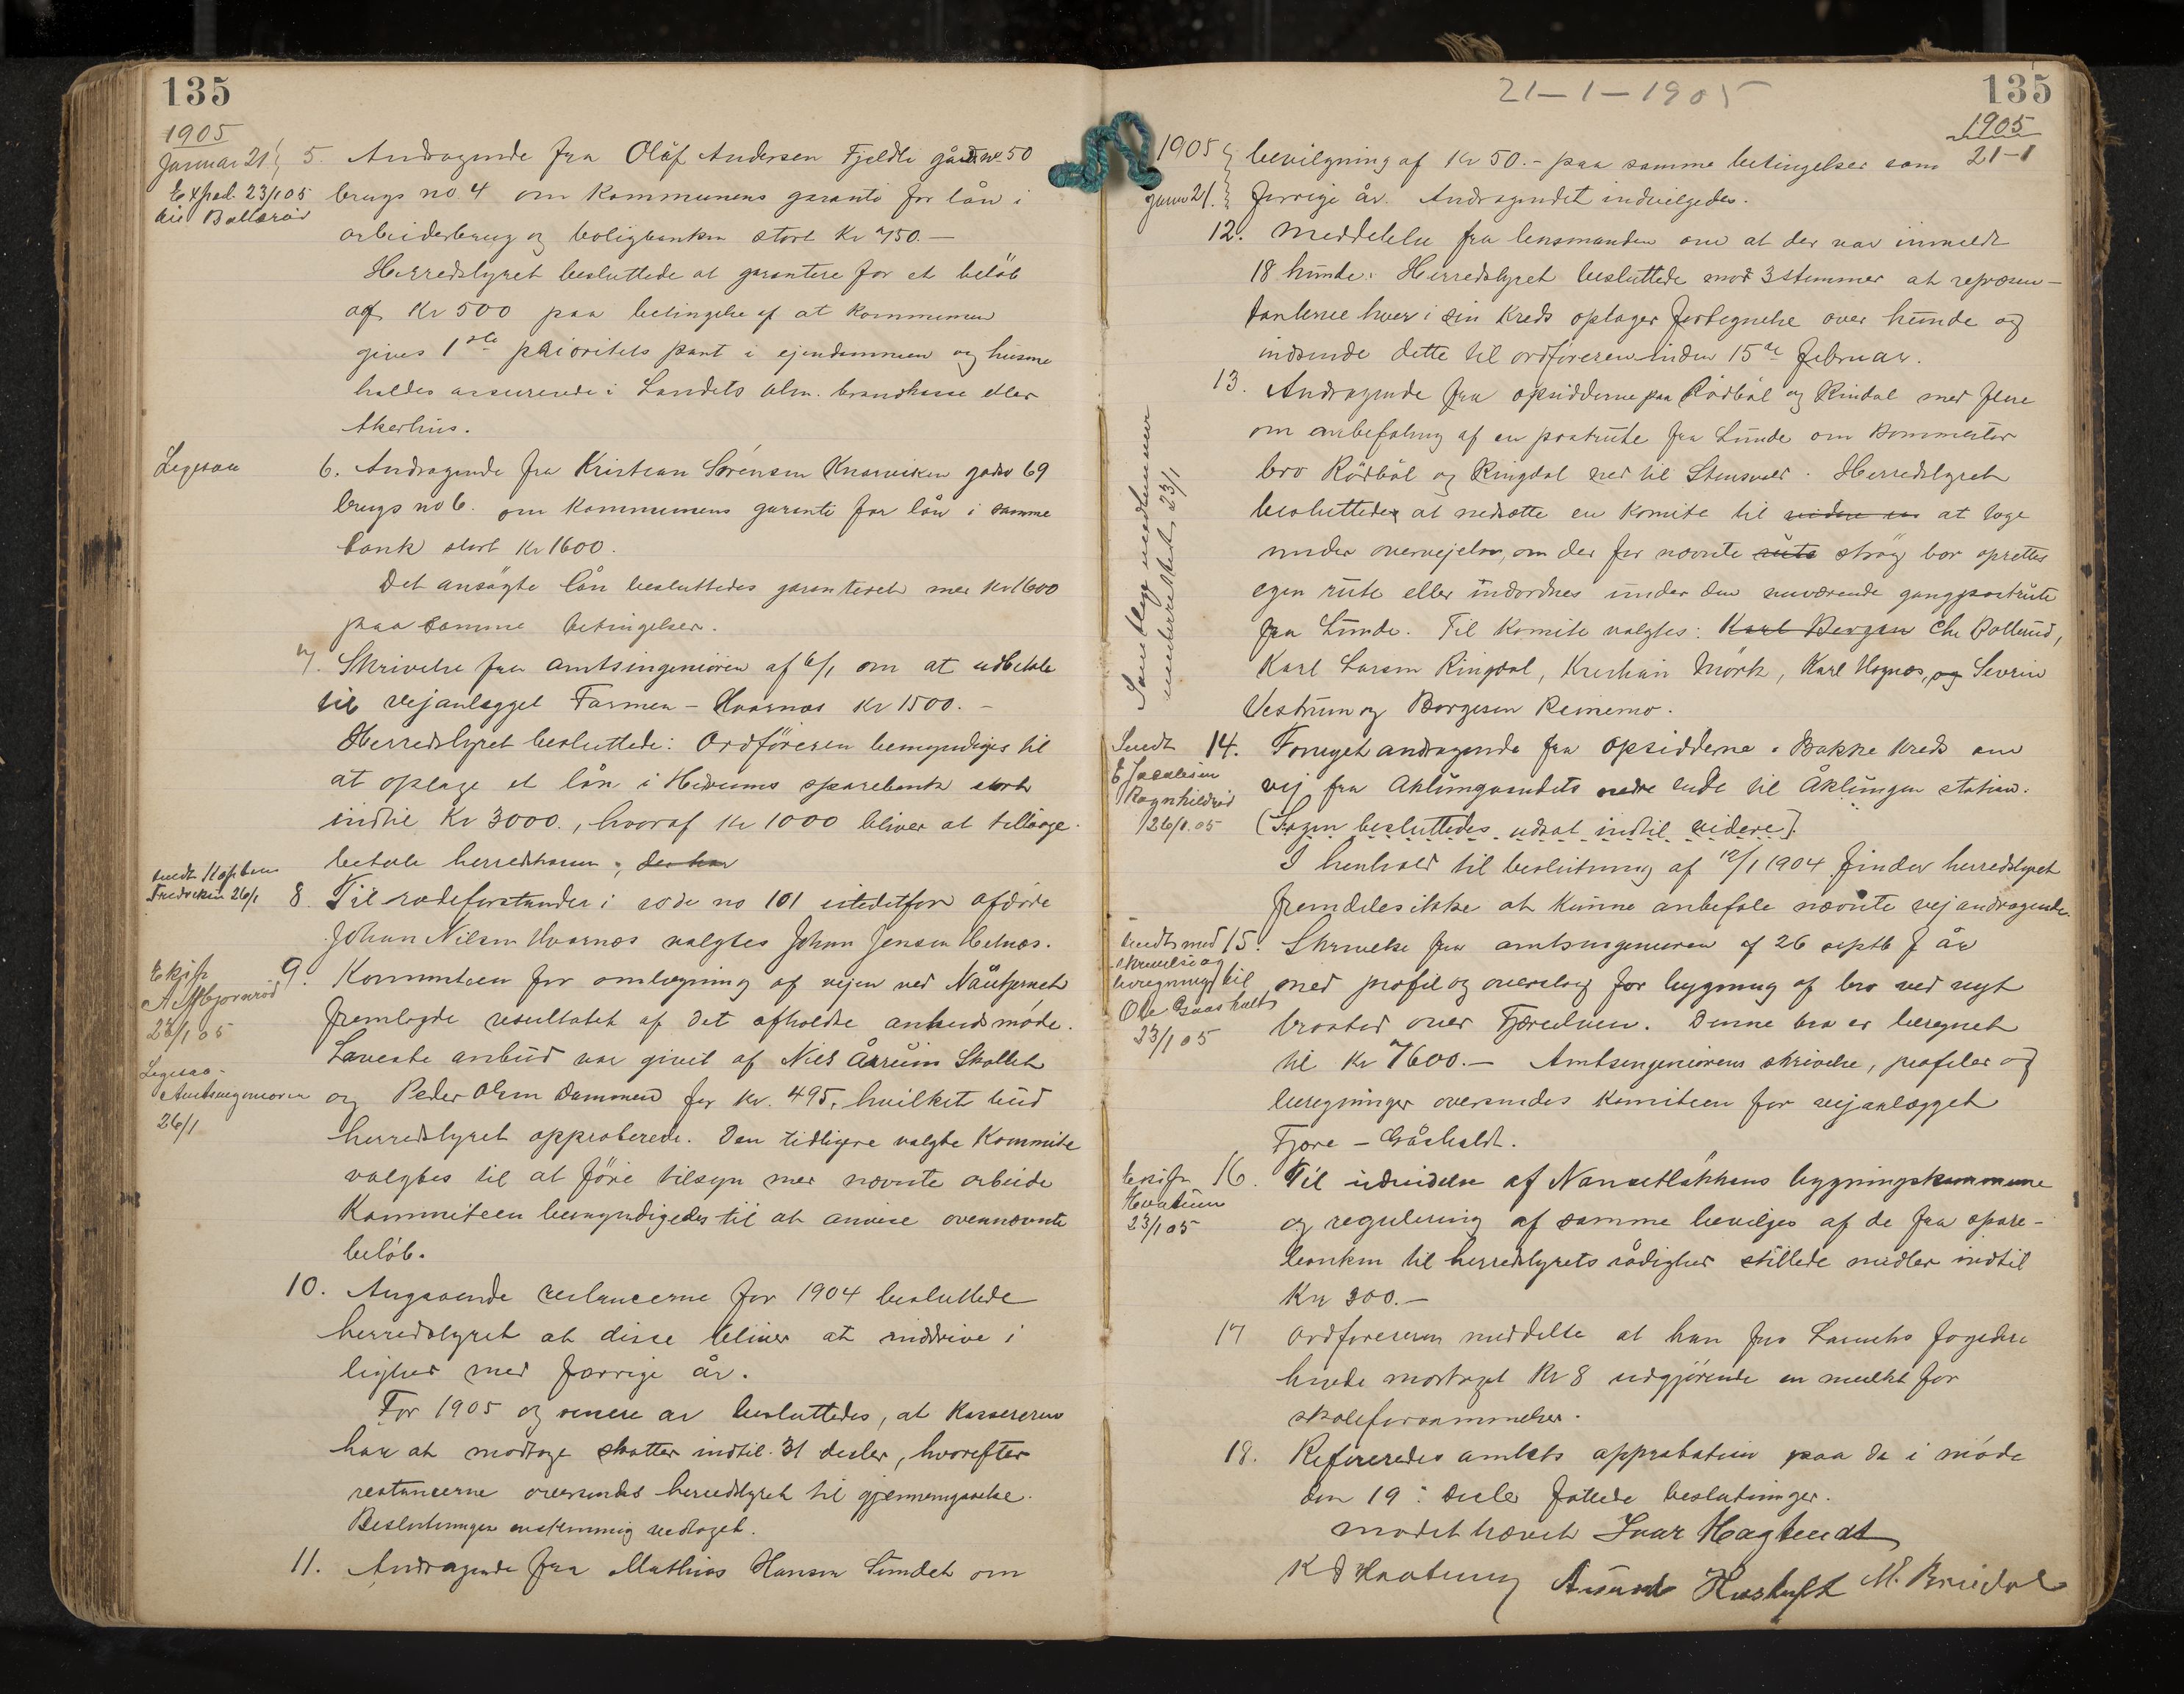 135
1905
Januar 21
Exped. 23/1 05
5. Andragende fra Olaf Andersen Fjeldli gårds no 50
brugs no 4 om kommunens garanti for lån i
arbeiderbrug og boligbanken stort Kr 750.—
Herredstyret besluttede at garantere for et beløb
af Kr 500 paa betingelse af at kommunen
gives 1ste prioritets pant i ejendommen og husene
holdes assurerede i Landets alm. brandkasse eller
Akerhus.
Ligesaa
6. Andragende fra Kristian Sörensen gårds 69
brugs no 6. om kommunens garanti for lån i samme
bank stort Kr 1600.
Det ansögte lån besluttedes garanteret med Kr 1600
paa samme betingelser.
7. Skrivelse fra amtsingeniören af 6/1 om at udbetale
til vejanlægget Farmen – Hvarnæs Kr 1500.–
Herredstyret besluttede: Ordföreren bemyndiges til
at optage et lån i Hedrums sparebank stort
indtil Kr 3000., hvoraf Kr 1000 bliver at tilbage-
betale herredskassen,
Fredriksen 26/1
8. Til rodeforstander i rode no 101 istedetfor afdøde
Johan Nilsen Hvarnæs valgtes Johan Jensen Helnæs.
23/1 05
9. Komiteen for omlægning af vejen ved
fremlagde resultatet af det afholdte anbudsmøde.
Laveste anbud var givet af Nils Åsrum Skollet
og Peder Olsen Dammen for kr. 495, hvilket bud
herredstyret approberede. Den tidligere valgte Kommite
valgtes til at före tilsyn med nævnte arbeide
Kommiteen bemyndigedes til at anvise ovennævnte
beløb.
Ligesaa –
Amtsingeniören
26/1
10. Angaaende restancerne for 1904 besluttede
herredstyret at disse bliver at inddrive i
lighed med forrige år.
For 1905 og senere år besluttedes, at Kassereren
har at modtage skatter indtil 31 decbr, hvorefter
restancerne oversendes herredstyret til gjennemgaaelse.
Beslutningen enstemmig vedtaget.
11. Andragende fra Mathias Hansen Sundet om
21–1–1905
135
1905
21–1
1905
Januar 21.
bevilgning af Kr 50.– paa samme betingelser som
forrige år. Andragendet indvilgedes.
12. Meddelelse fra lensmanden om at der var inmeldt
18 hunde. Herredstyret besluttede mod 3 stemmer at repræsen-
tanterne hver i sin kreds optager fortegnelse over hunde og
indsende dette til ordföreren inden 15de februar.
13. Andragende fra opsidderne paa Rödböl og Rindal med flere
om anbefaling af en postrute fra Lunde om Kommerter
bro Rödböl og Ringdal ned til Stensvold. Herredstyret
besluttede at nedsætte en komite til at tage
under overvejelse, om der for nævnte rute strög bør oprettes
egen rute eller indordnes under den nuværende gangpostrute
fra Lunde. Til Komite valgtes: Karl Bergan Chr Bollerud,
Karl Larsen Ringdal, Kristian Mörk, Karl Hagnæs, og Severin
Vestrum og Borgersen Reinemo.
23/1
Sendt
E Jacobsen
Ragnhildröd
26/1.05
14. Fornyet andragende fra opsidderne i Bakke kreds om
vej fra Aklungvandets nedre ende til Åklungen station.
(Sagen besluttedes udsat indtil videre).
I henhold til beslutning af 12/1 1904 finder herredstyret
fremdeles ikke at kunne anbefale nævnte vejandragende.
Sendt med
skrivelse og
beregninger til
Ole Gaasholt
23/1 05
15. Skrivelse fra amtsingeniören af 26 septb f år
med profil og overslag for bygning af bro ved nyt
brosted over Fjæreelven. Denne bro er beregnet
til Kr 7600.— Amtsingeniörens skrivelse, profiler og
beregninger oversendes Komiteen for vejanlægget
Fjære – Gåsholdt.
23/1 05
16. Til udvidelse af Nansetløkkens bygningskommune
og regulering af samme bevilges af de fra spare-
banken til herredstyrets rådighed stillede midler indtil
Kr 300.—
17 Ordföreren meddelte at han fra Larviks fogderi
havde modtaget Kr 8 udgjörende en mulkt for
skoleforsömmelser.
18. Refereredes amtets approbation paa de i møde
den 19: decbr fattede beslutninger.
Mødet hævet Ivar Hagtvedt